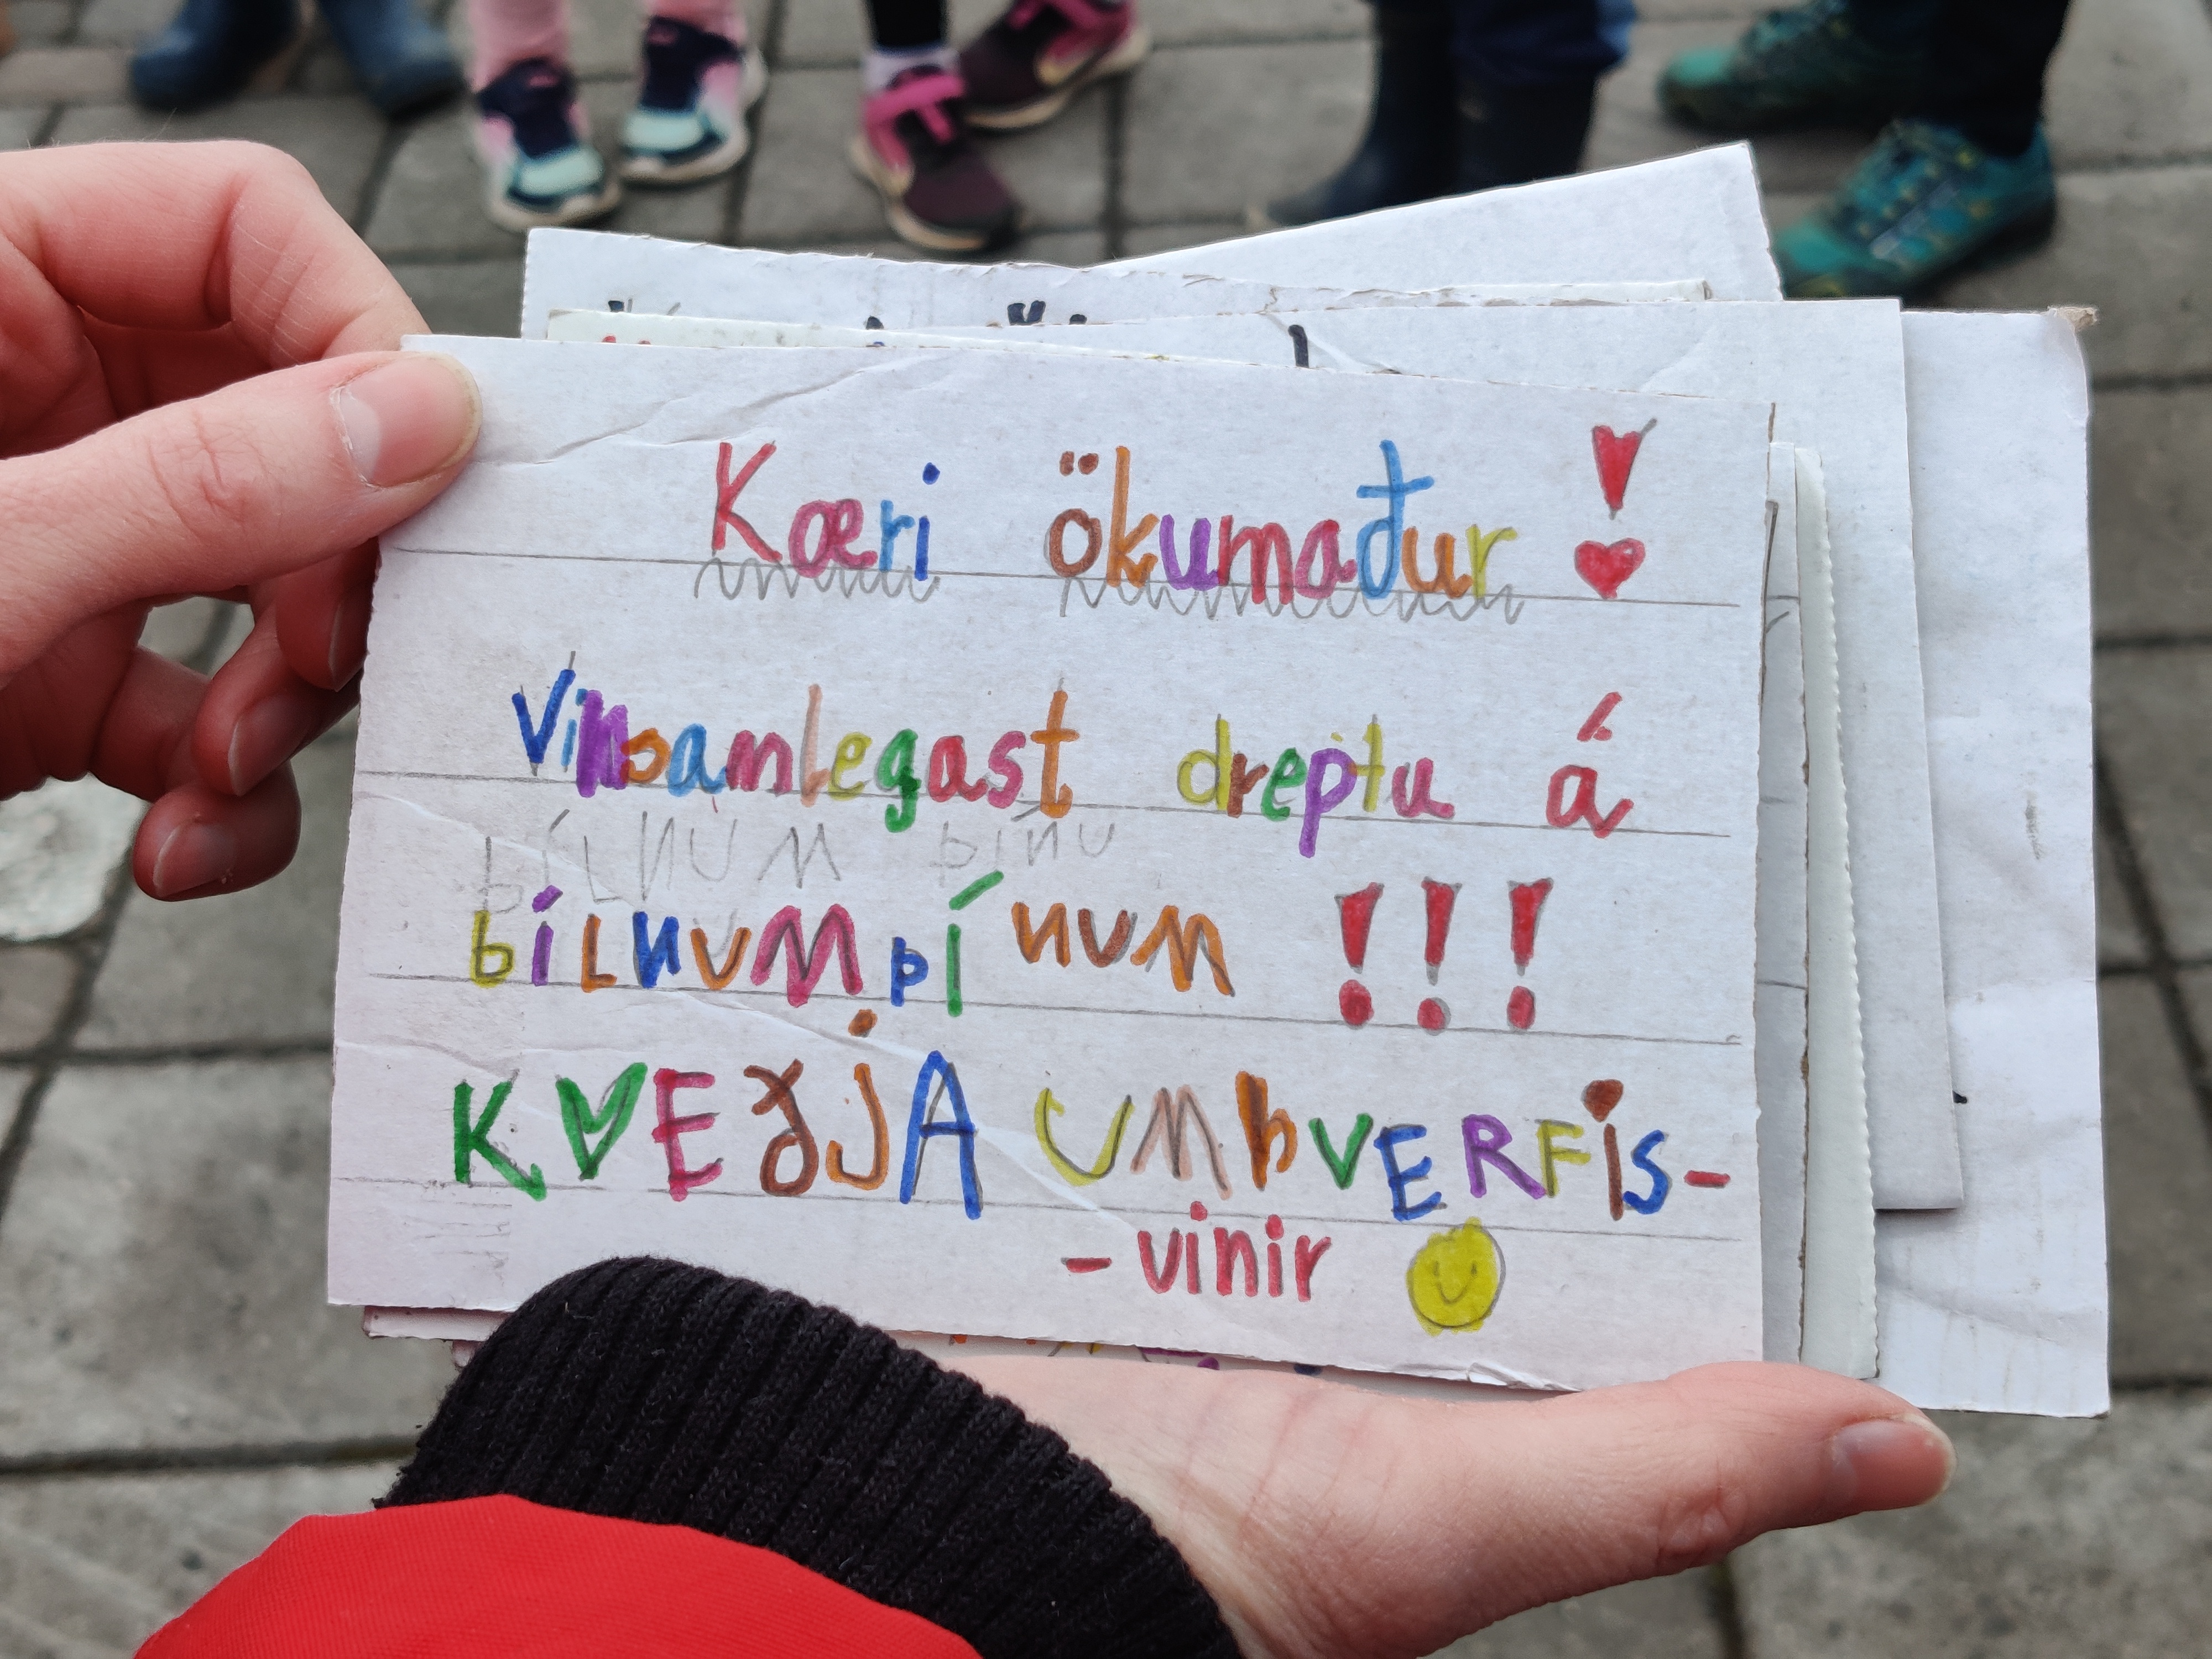 Kæri ökumaður!
Vinsamlegast dreptu á
BÍLNUM ÞÍNU
BÍLNUM ÞÍNUM !!!
KVEÐJA UMhVERFIS-
- vinir